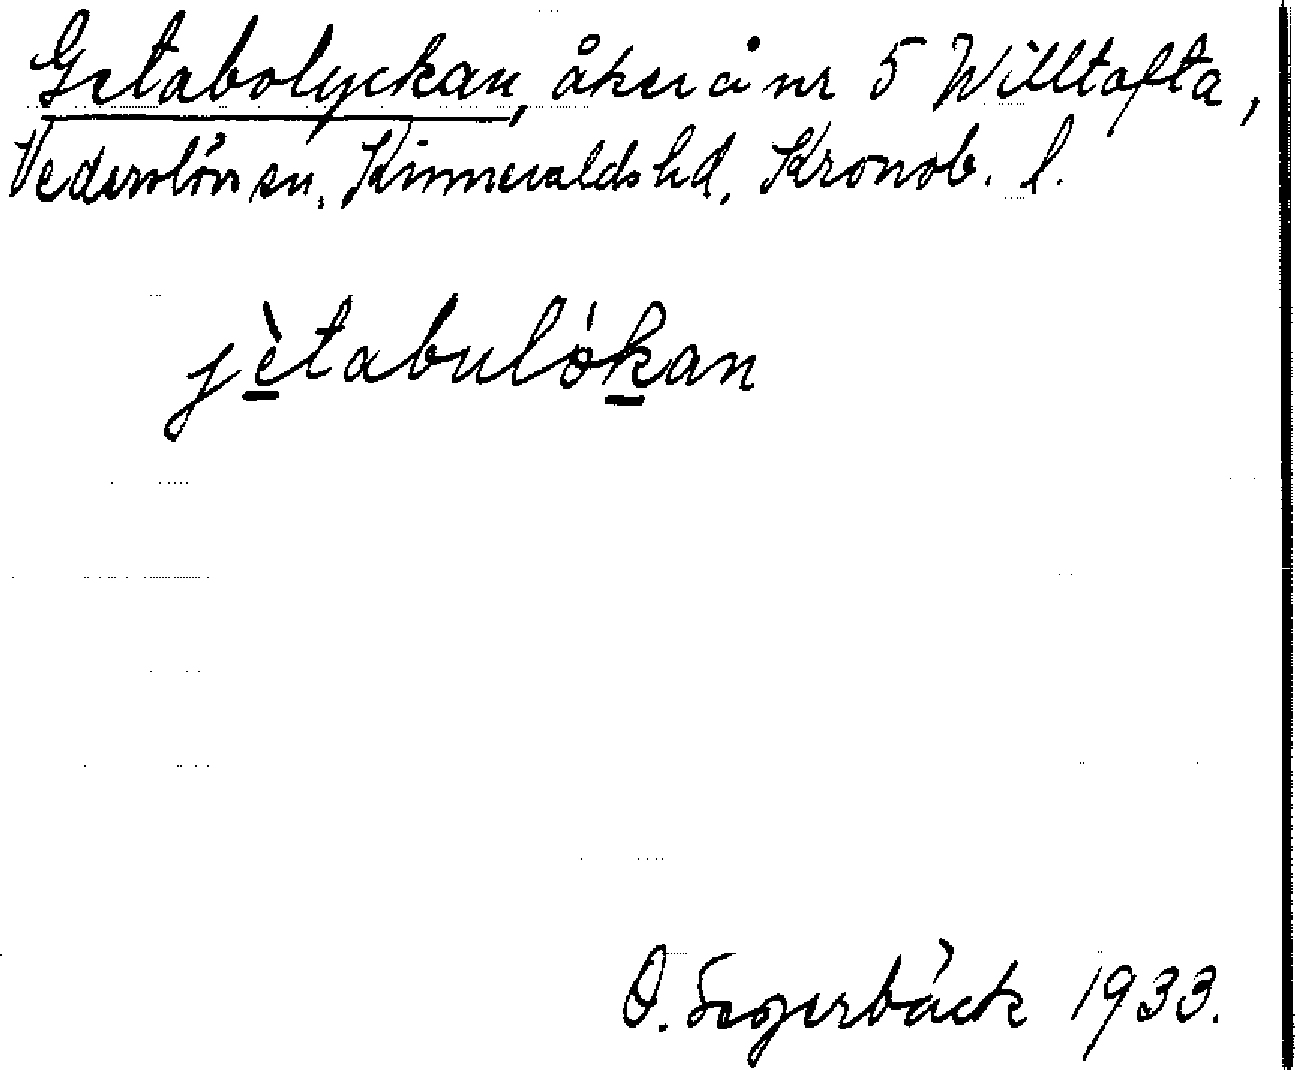 Getabolyckan, åker å nr 5 Willtofta,
Vederslövs sn, Kinnevalds hd, Kronob. l.
jètabulókan
O. Segerbäck 1933.